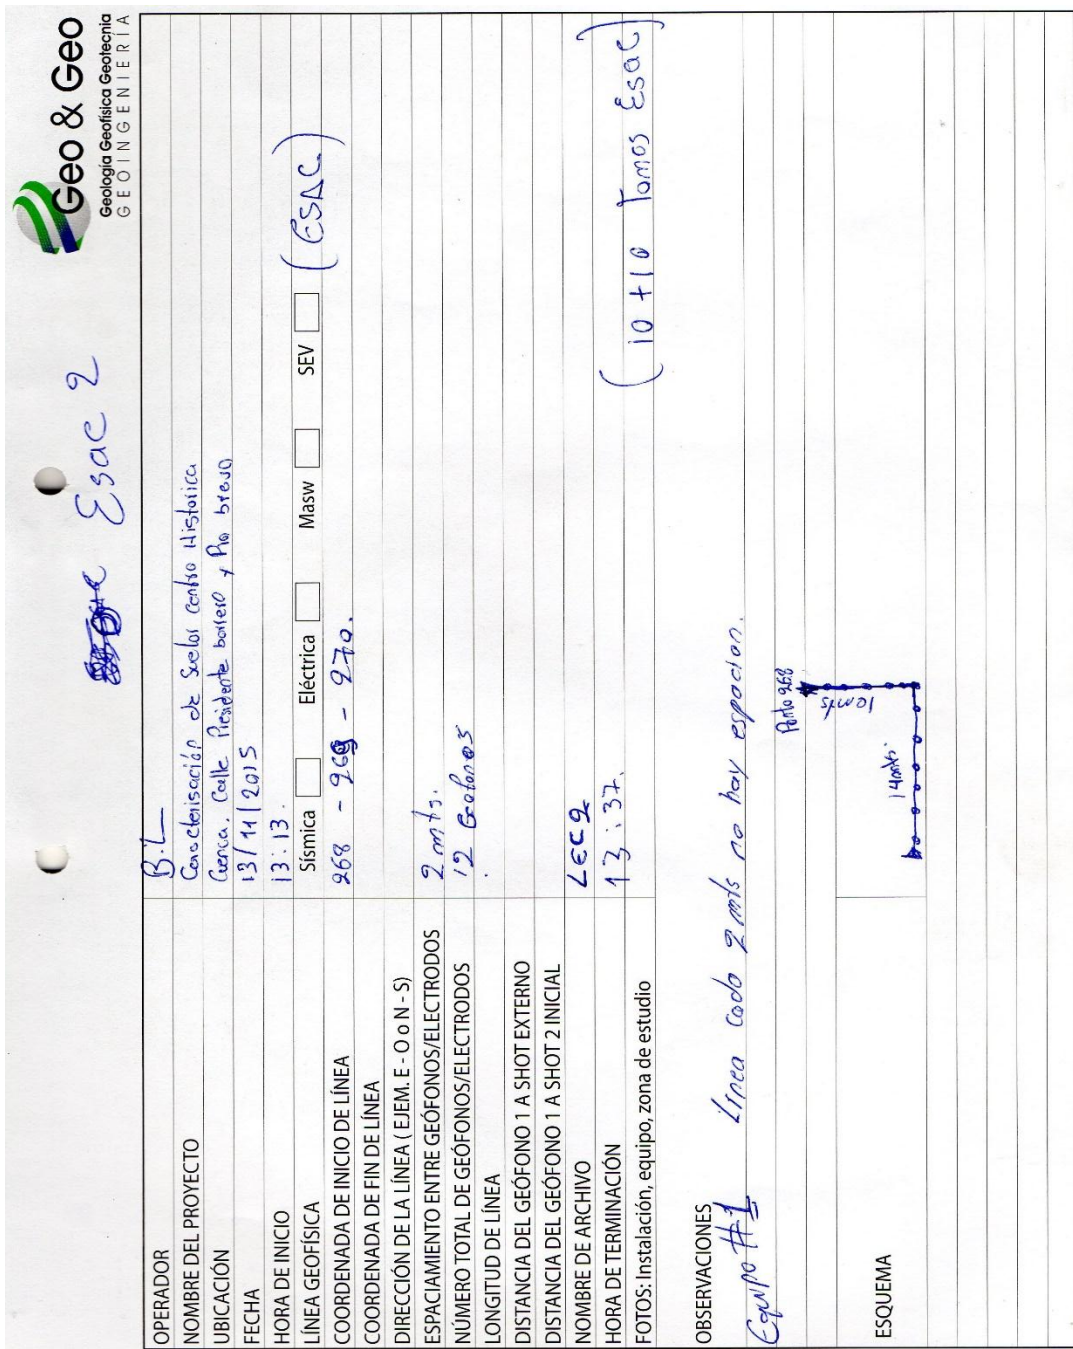 Geo & Geo
Geología Geofísica Geotecnia
GEOINGENIERÍA
Esac 2
OPERADOR B.L
NOMBRE DEL PROYECTO Caracterisación de Suelos Centro Historica
UBICACIÓN Cuenca. Calle Presidente borrero y Pio bravo
FECHA 13/11/2015
HORA DE INICIO 13:13.
LÍNEA GEOFÍSICA Sísmica Eléctrica Masw SEV (ESAC)
COORDENADA DE INICIO DE LÍNEA 268 - 269 - 270.
COORDENADA DE FIN DE LÍNEA
DIRECCIÓN DE LA LÍNEA ( EJEM. E - O o N - S)
ESPACIAMIENTO ENTRE GEÓFONOS/ELECTRODOS 2 mts.
NÚMERO TOTAL DE GEÓFONOS/ELECTRODOS 12 Geofonos
LONGITUD DE LÍNEA
DISTANCIA DEL GEÓFONO 1 A SHOT EXTERNO
DISTANCIA DEL GEÓFONO 1 A SHOT 2 INICIAL
NOMBRE DE ARCHIVO LEC2
HORA DE TERMINACIÓN 13:37.
(10 + 10 Tomas Esac)
FOTOS: Instalación, equipo, zona de estudio
OBSERVACIONES Línea cada 2 mts no hay espacion.
Equipo #1
Punto 268
10mts
14mts.
ESQUEMA